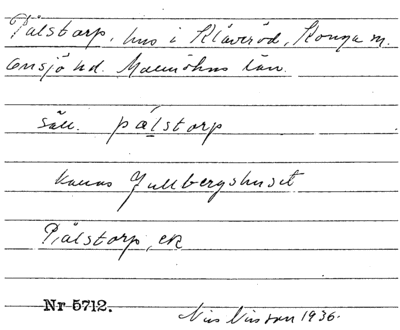 Pålstorp, hus i Klåveröd, Konga sn.
Onsjö hd. Malmöhus län.
säll. pålstorp
kallas Jullbergshuset
Pålstorp, ek
Nr 5712.
Nils Nilsson 1936.